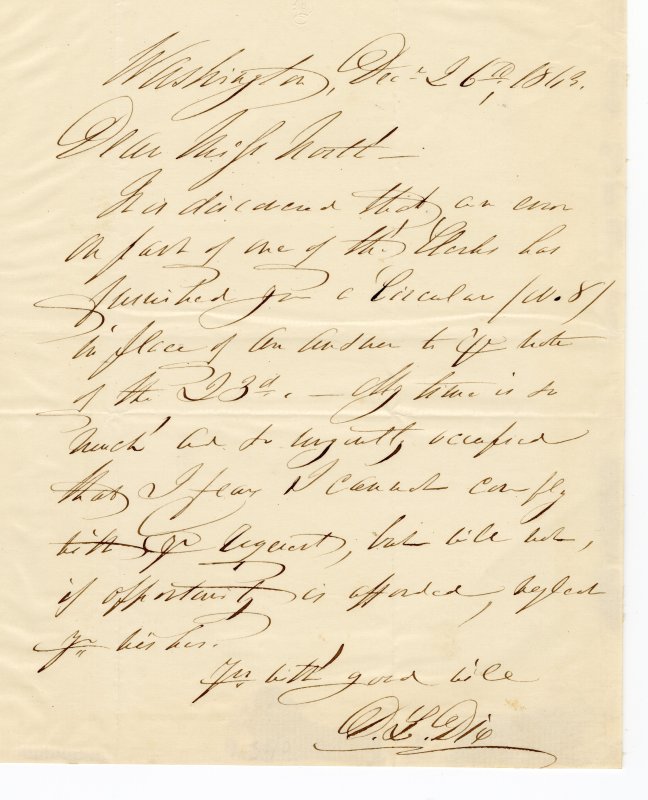 Washington, Decr 26th, 1863.
Dear Miss North —
It is discovered that an error
on part of one of the Clerks has
furnished you a Circular (No. 8)
in place of an answer to yr note
of the 23d. — My time is so
much and so urgently occupied
that I fear I cannot comply
with yr request, but will not,
if opportunity is afforded, neglect
yr wishes.
Yrs with good will
D. L. Dix